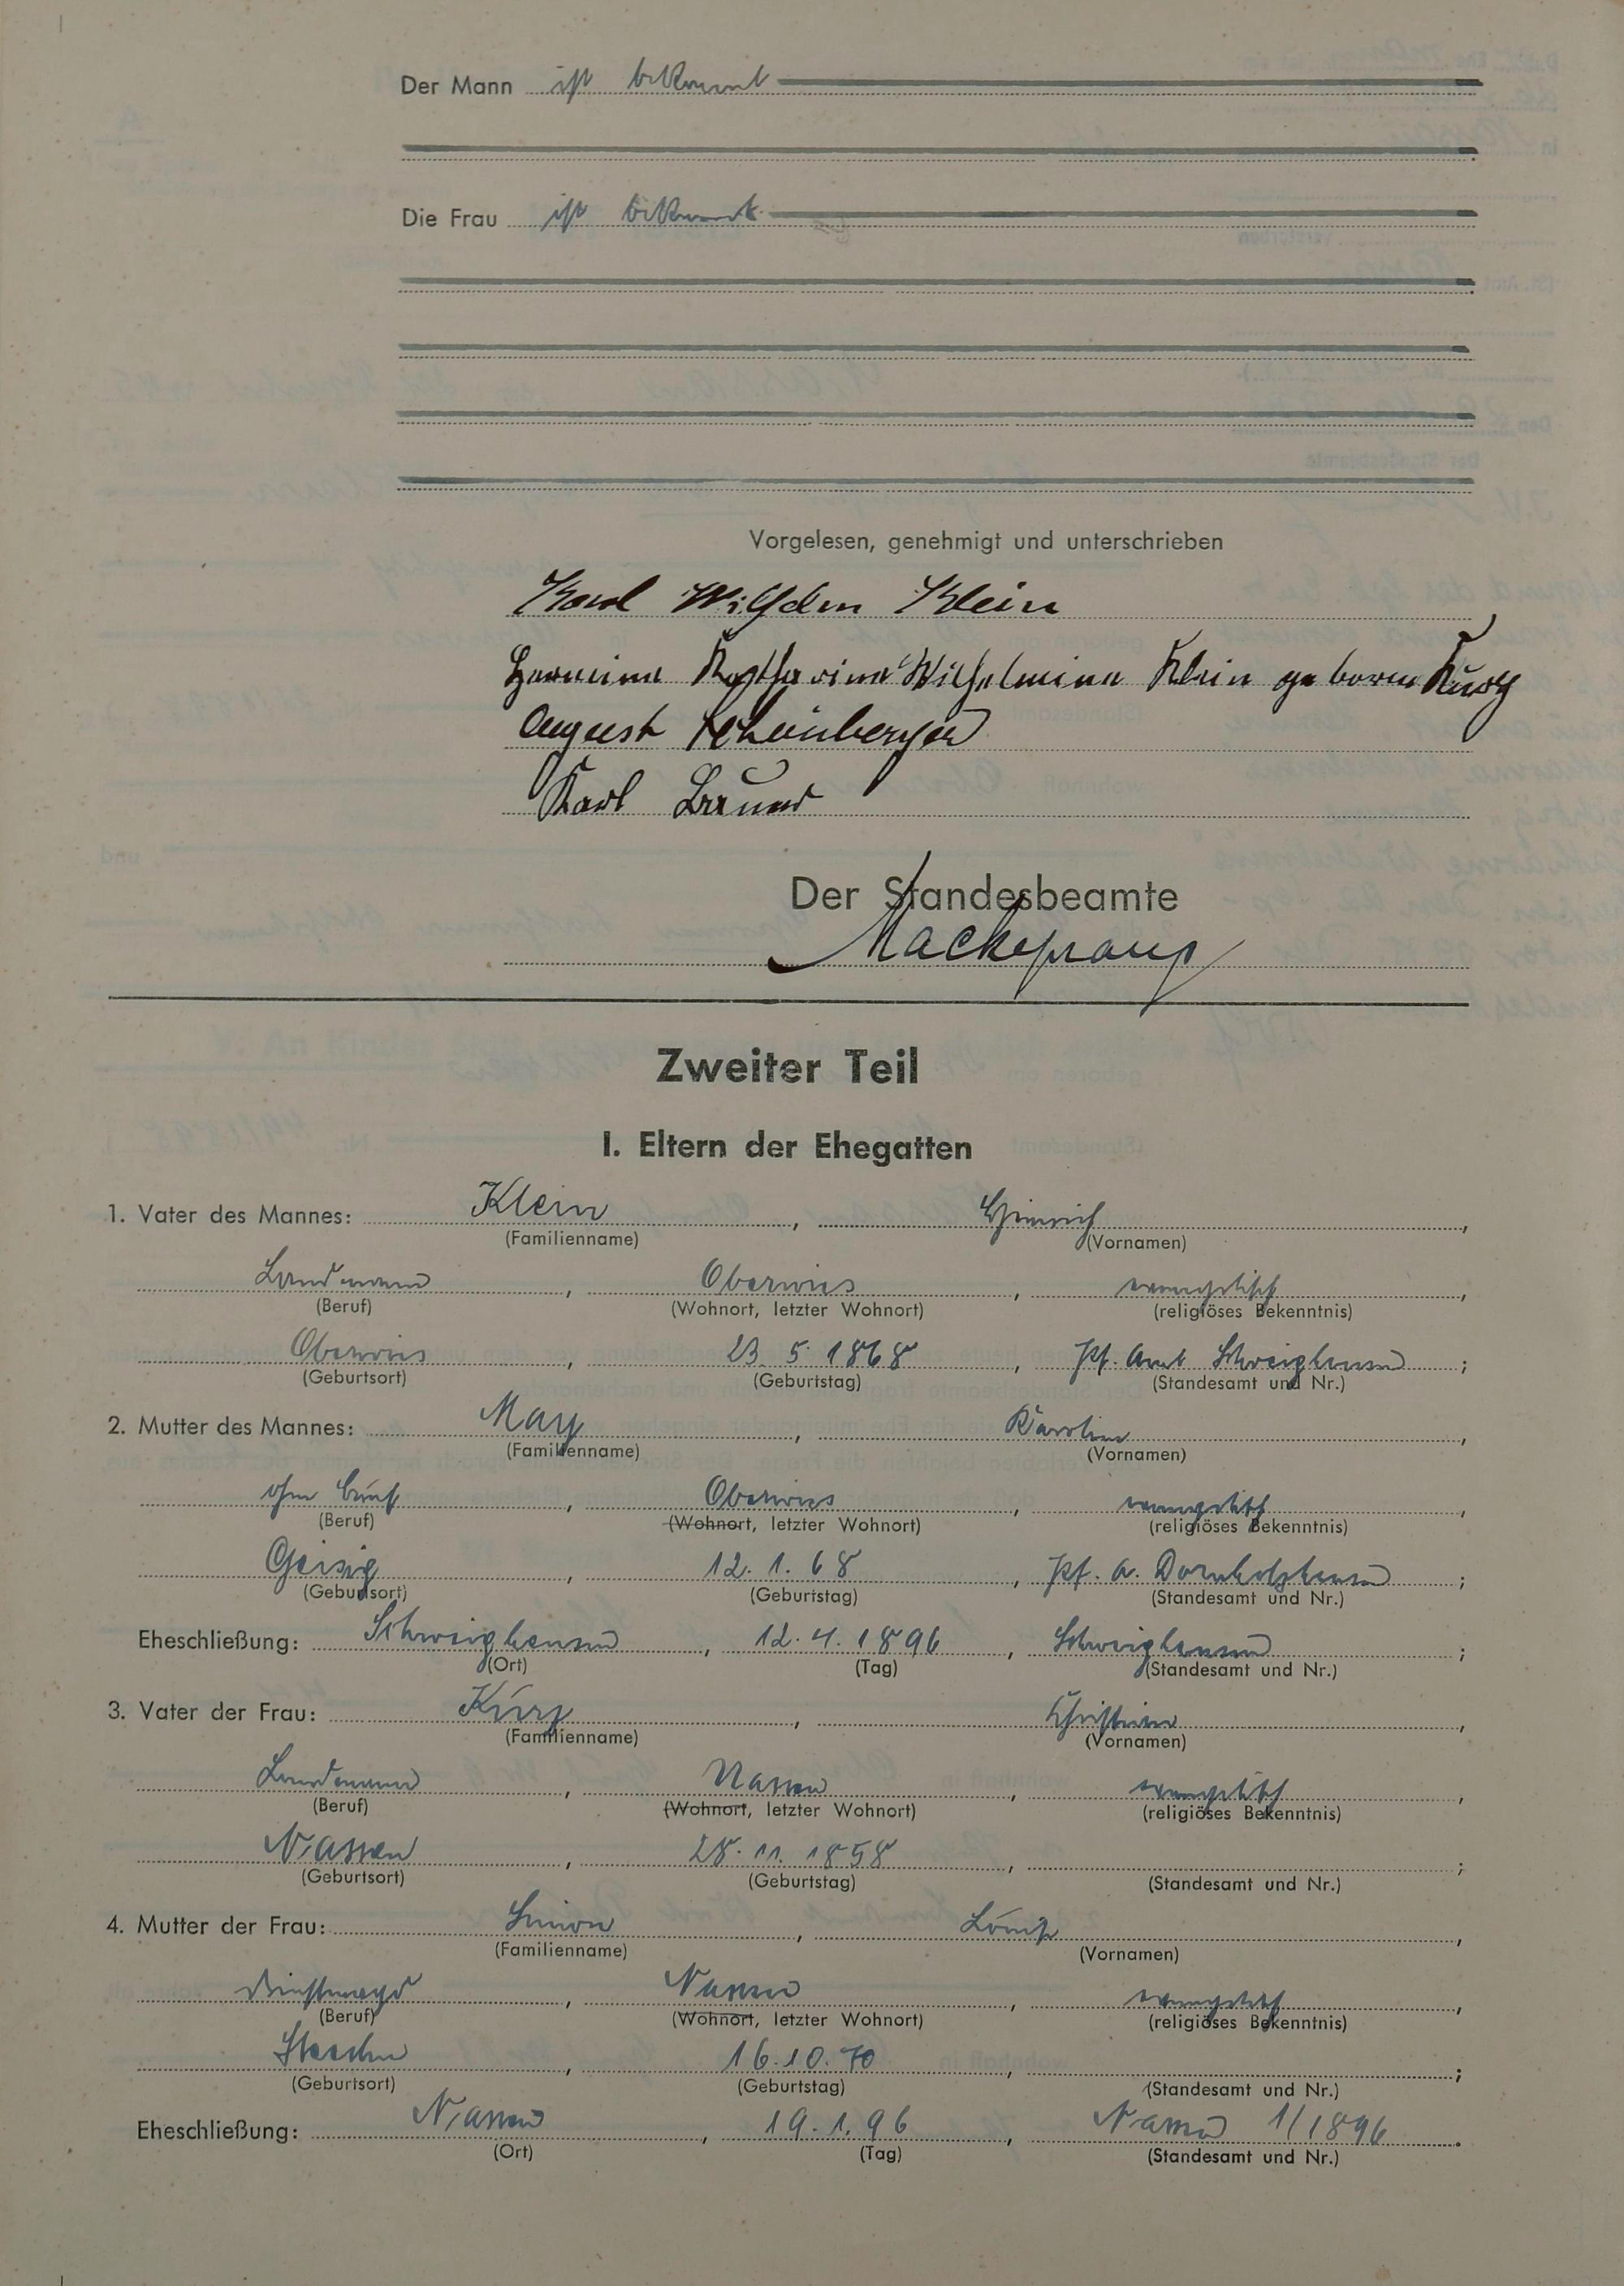 Der Mann ist bekannt
Die Frau ist bekannt
Vorgelesen, genehmigt und unterschrieben
Karl Wilhelm Klein
Hermine Katharina Wilhelmine Klein geboren Kurz
August Scheinberger
Karl Bruner
Der Standesbeamte
Mackeprang
Zweiter Teil
I. Eltern der Ehegatten
1. Vater des Mannes: Klein, Heinrich,
(Familienname) (Vornamen)
Landmann, Oberwies, evangelisch,
(Beruf) (Wohnort, letzter Wohnort) (religiöses Bekenntnis)
Oberwies, 23. 5. 1868, Pf. Amt Schweighausen;
(Geburtsort) (Geburtstag) (Standesamt und Nr.)
2. Mutter des Mannes: May, Karoline,
(Familienname) (Vornamen)
ohne Beruf, Oberwies, evangelisch,
(Beruf) (Wohnort, letzter Wohnort) (religiöses Bekenntnis)
Geisig, 12. 1. 68, Pf. A. Dornholzhausen;
(Geburtsort) (Geburtstag) (Standesamt und Nr.)
Eheschließung: Schweighausen, 12. 4. 1896, Schweighausen;
(Ort) (Tag) (Standesamt und Nr.)
3. Vater der Frau: Kurz, Christian,
(Familienname) (Vornamen)
Landmann, Nassau, evangelisch,
(Beruf) (Wohnort, letzter Wohnort) (religiöses Bekenntnis)
Nassau, 28. 11. 1858,;
(Geburtsort) (Geburtstag) (Standesamt und Nr.)
4. Mutter der Frau: Simon, Louise,
(Familienname) (Vornamen)
Dienstmagd, Nassau, evangelisch,
(Beruf) (Wohnort, letzter Wohnort) (religiöses Bekenntnis)
, 16. 10. 70,;
(Geburtsort) (Geburtstag) (Standesamt und Nr.)
Eheschließung: Nassau, 19. 1. 96, Nassau 1/1896.
(Ort) (Tag) (Standesamt und Nr.)